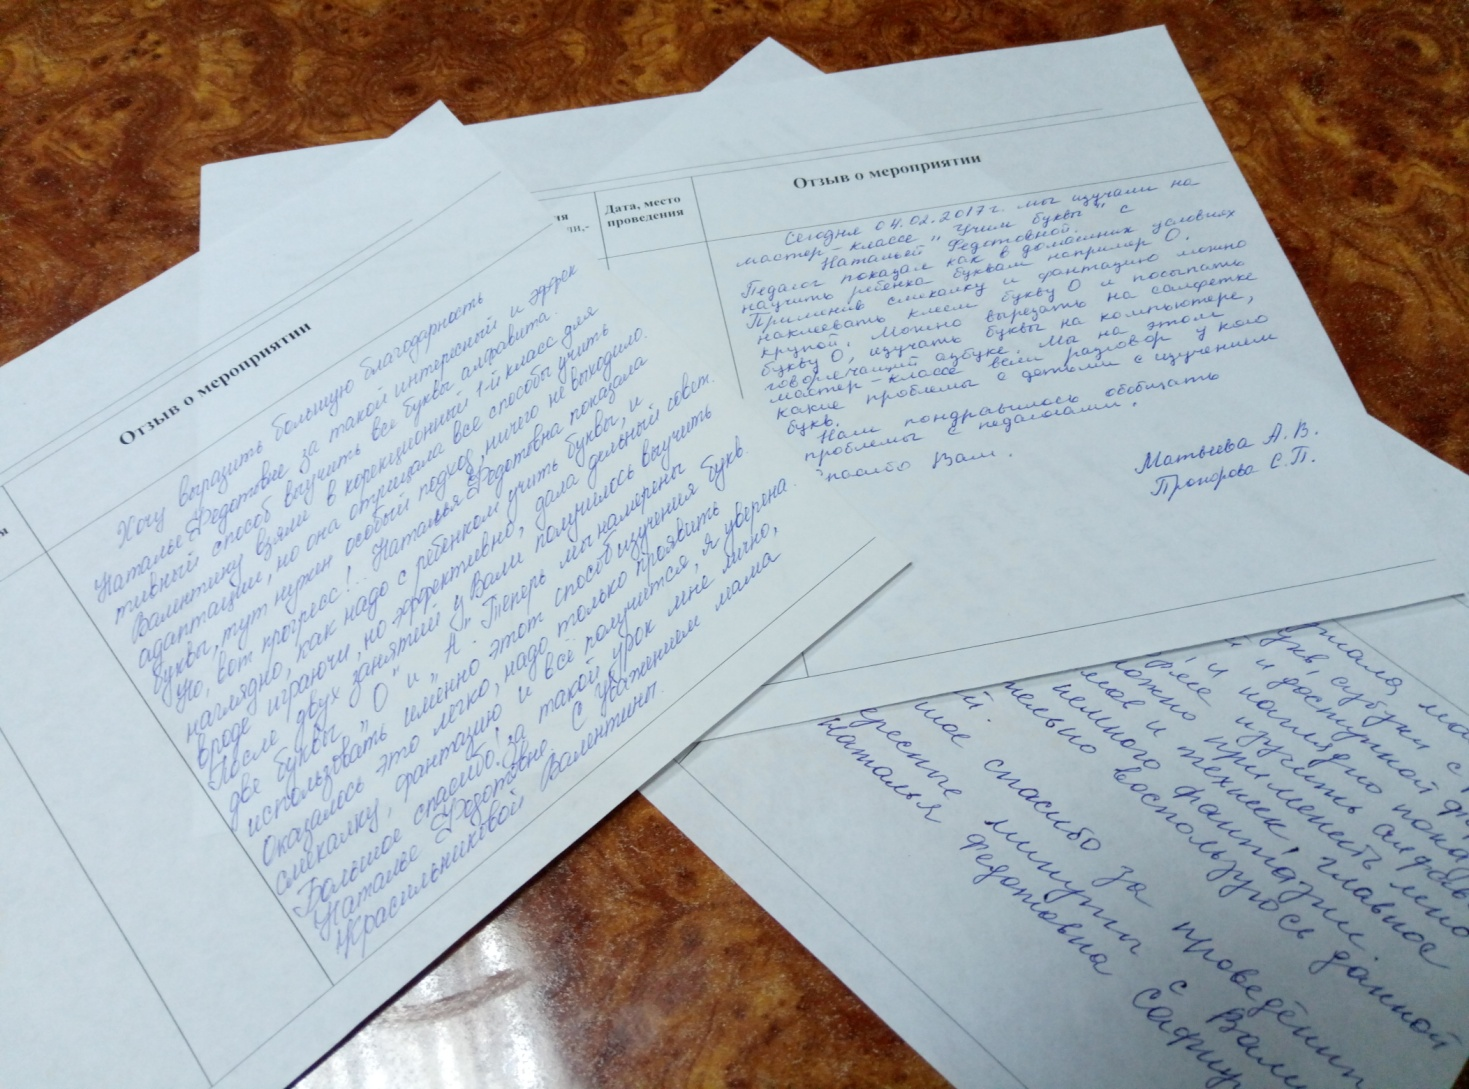 Отзыв о мероприятии
Хочу выразить большую благодарность
Наталье Федотовне за такой интересный и эффек
тивный способ выучить все буквы алфавита.
Валентину взяли в корекционный 1-й класс для
адаптации, но она отрицала все способы учить
буквы, тут нужен особый подход, ничего не выходило.
Но, вот прогресс!.. Наталья Федотовна показала
наглядно, как надо с ребёнком учить буквы, и
вроде играючи, но эффективно, дала дельный совет.
После двух занятий у Вали получилось выучить
две буквы "О" и "А". Теперь мы намерены
использовать именно этот способ изучения букв.
Оказалось это легко, надо только проявить
смекалку, фантазию и всё получится, я уверена.
Большое спасибо, за такой урок мне лично,
Наталье Федотовне. С уважением мама
Красильниковой Валентины.
ия
Дата, место
проведения
Отзыв о мероприятии
Сегодня 04.02.2017г. мы изучали на
мастер-классе "Учим буквы" с
Натальей Федотовной.
Педагог показал как в домашних условиях
научить ребенка буквам например О.
Применив смекалку и фантазию можно
наклеивать клеем букву О и посыпать
крупой. Можно вырезать на салфетке
букву О, изучать буквы на компьютере,
говорящий азбуке. Мы на этом
мастер-классе вели разговор у кого
какие проблемы с детьми с изучением
букв.
Нам пондравилось обобщать
проблемы с педагогами.
пасибо Вам.
Матвеева А. В.
Прохорова С.П.
букв, сузуки с
и доступной
и наглядно пока
изучить алфав
ожно применеть мно
мое и техник, главное
немного фантазии
тельно воспользуюсь данной
шое спасибо за проведённ
ересные минуты с Вам
Наталья Федотовна